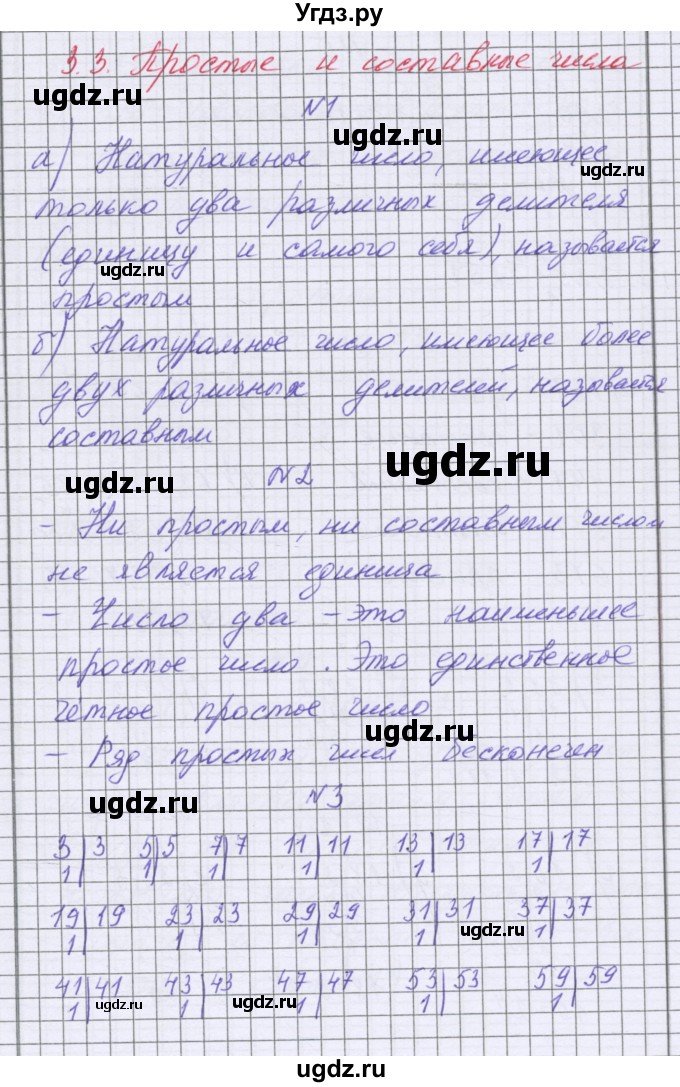 Угдз.ру
3.3. Простые и составные числа
ugdz.ru
№1
ugdz.ru
а) Натуральное число, имеющее
ugdz.ru
только два различных делителя
(единицу и самого себя), называется
ugdz.ru
простым
б) Натуральное число, имеющее более
двух различных делителей, называется
составным
ugdz.ru
ugdz.ru
№2
- Ни простым, ни составным числом
не является единица
- Число два - это наименьшее
простое число. Это единственное
чётное простое число
ugdz.ru
- Ряд простых чисел бесконечен
ugdz.ru
№3
3|3 5|5 7|7 11|11 13|13 17|17
1| 1| 1| 1| 1| 1|
19|19 23|23 29|29 31|31 37|37
1| 1| 1| 1| 1|
ugdz.ru
41|41 43|43 47|47 53|53 59|59
1| 1| 1| 1| 1|
ugdz.ru ugdz.ru
ugdz.ru